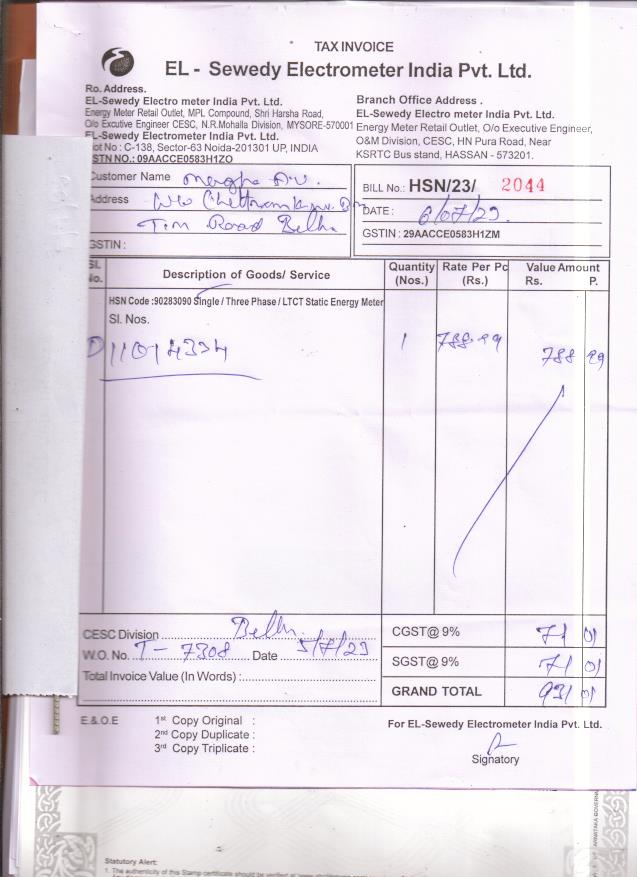 TAX INVOICE
EL - Sewedy Electrometer India Pvt. Ltd.
Ro. Address.
EL-Sewedy Electro meter India Pvt. Ltd.
Energy Meter Retail Outlet, MPL Compound, Shri Harsha Road,
O/o Excutive Engineer CESC, N.R.Mohalla Division, MYSORE-570001
EL-Sewedy Electrometer India Pvt. Ltd.
lot No : C-138, Sector-63 Noida-201301 UP, INDIA
GSTN NO.: 09AACCE0583H1ZO
Branch Office Address .
EL-Sewedy Electro meter India Pvt. Ltd.
Energy Meter Retail Outlet, O/o Executive Engineer,
O&M Division, CESC, HN Pura Road, Near
KSRTC Bus stand, HASSAN - 573201.
Customer Name
Address W/o
Road
GSTIN :
BILL No.: HSN/23/ 2044
DATE : 6/07/23.
GSTIN : 29AACCE0583H1ZM
SL No. Description of Goods/ Service Quantity (Nos.) Rate Per Pc (Rs.) Value Amount Rs. P.
HSN Code :90283090 Single / Three Phase / LTCT Static Energy Meter
Sl. Nos.
11014334 1 788.99 788 99
CESC Division
W.O. No. T - 7308 Date 5/7/23
Total Invoice Value (In Words) :
CGST@ 9% 71 01
SGST@ 9% 71 01
GRAND TOTAL 931 01
E.& O.E 1st Copy Original :
2nd Copy Duplicate :
3rd Copy Triplicate :
For EL-Sewedy Electrometer India Pvt. Ltd.
Signatory
Statutory Alert: